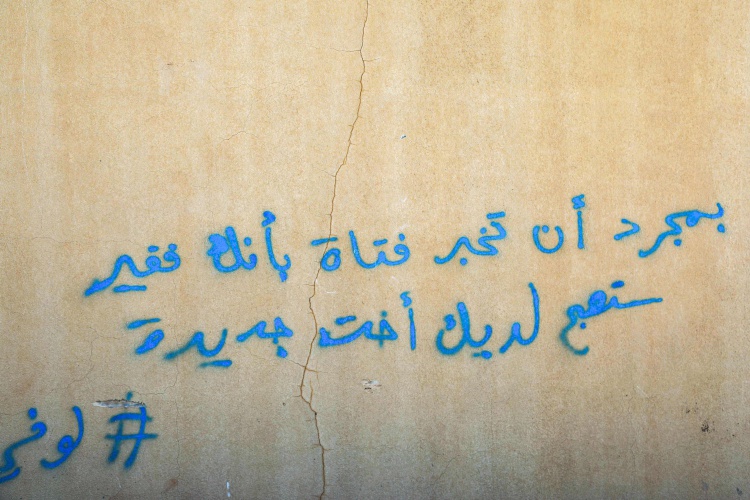 بمجرد أن تخبر فتاة بأنك فقير
ستصبح لديك أخت جديدة
# لوفي